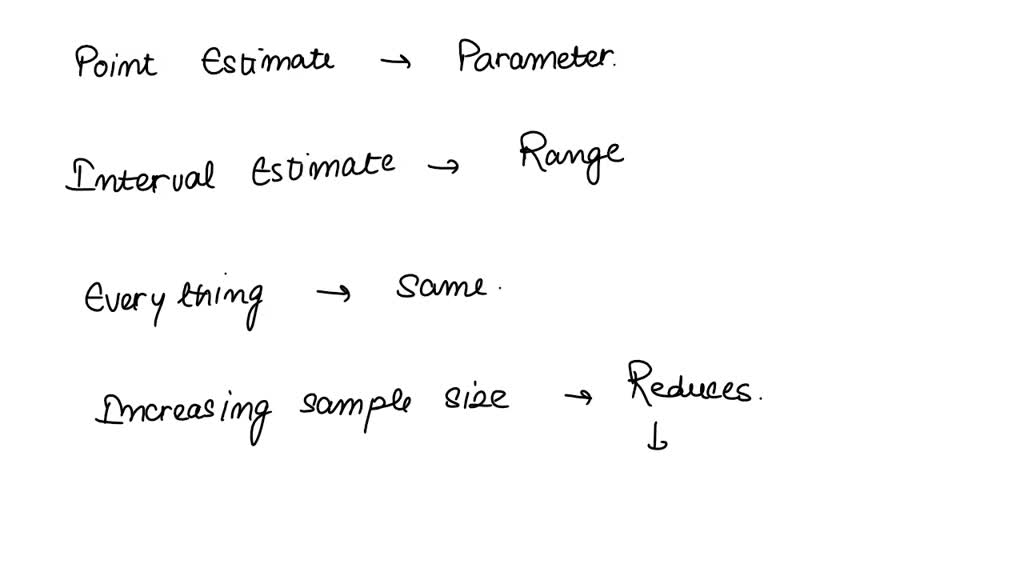 Point Estimate → Parameter.
Interval Estimate → Range
Everything → Same.
Increasing sample size → Reduces.
↓